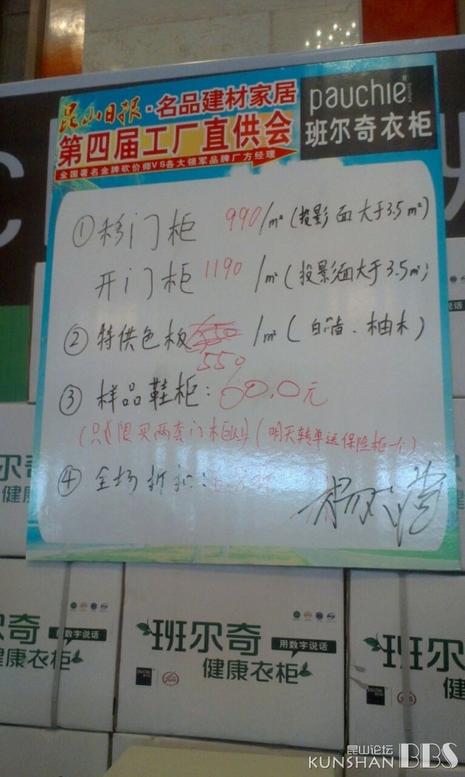 昆山日报·名品建材家居
第四届工厂直供会
全国著名金牌砍价师VS各大领军品牌厂方经理
pauchie
班尔奇衣柜
① 移门柜 990/m² (投影面大于3.5m²)
开门柜 1190/m² (投影面大于3.5m²)
② 特供色板 /m² (白 、柚木)
550
③ 样品鞋柜: 60.0元
(只限买两套门柜以 (明天转单送保险柜一个)
④ 全场折扣:
班尔奇
用数字说话
健康衣柜
班尔奇
用数字说话
健康衣柜
班尔
健康
昆山论坛
KUNSHAN BBS